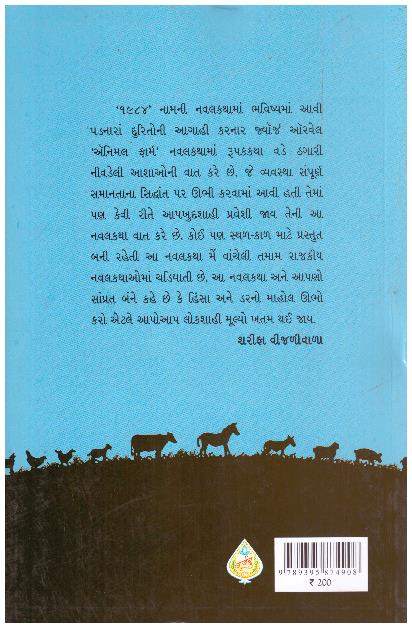 ‘૧૯૮૪’ નામની નવલકથામાં ભવિષ્યમાં આવી
પડનારાં દુરિતોની આગાહી કરનાર જ્યૉર્જ ઑરવેલ
‘ઍનિમલ ફાર્મ’ નવલકથામાં રૂપકકથા વડે ઠગારી
નીવડેલી આશાઓની વાત કરે છે. જે વ્યવસ્થા સંપૂર્ણ
સમાનતાના સિદ્ધાંત પર ઊભી કરવામાં આવી હતી તેમાં
પણ કેવી રીતે આપખુદશાહી પ્રવેશી જાય તેની આ
નવલકથા વાત કરે છે. કોઈ પણ સ્થળ-કાળ માટે પ્રસ્તુત
બની રહેતી આ નવલકથા મેં વાંચેલી તમામ રાજકીય
નવલકથાઓમાં ચડિયાતી છે. આ નવલકથા અને આપણો
સાંપ્રત બંને કહે છે કે હિંસા અને ડરનો માહોલ ઊભો
કરો એટલે આપોઆપ લોકશાહી મૂલ્યો ખતમ થઈ જાય.
શરીફા વીજળીવાળા
9 789395 874908
₹ 200